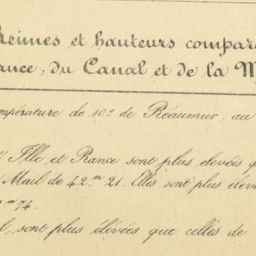 Reimes et hauteurs compar
ance, du Canal et de la M
mpérature de 10° de Réaumur, au
Ille et Rance sont plus élevées q
Mail de 42.m 21. Elles sont plus élev
m 74.
l, sont plus élevées que celles de